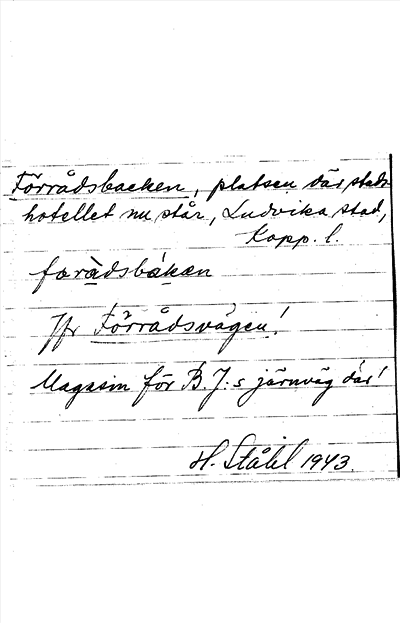 Förrådsbacken, platsen där stads-
hotellet nu står, Ludvika stad,
Kopp. l.
færàdsbákæn
Jfr Förrådsvägen!
Magasin för B.J:s järnväg där!
H. Ståhl 1943.